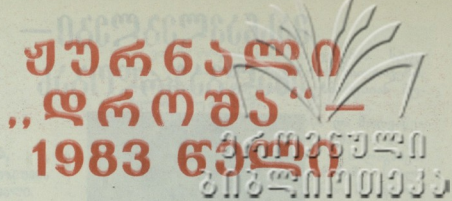 ჟურნალი
„დროშა“ —
1983 წელი
ეროვნული
ბიბლიოთეკა